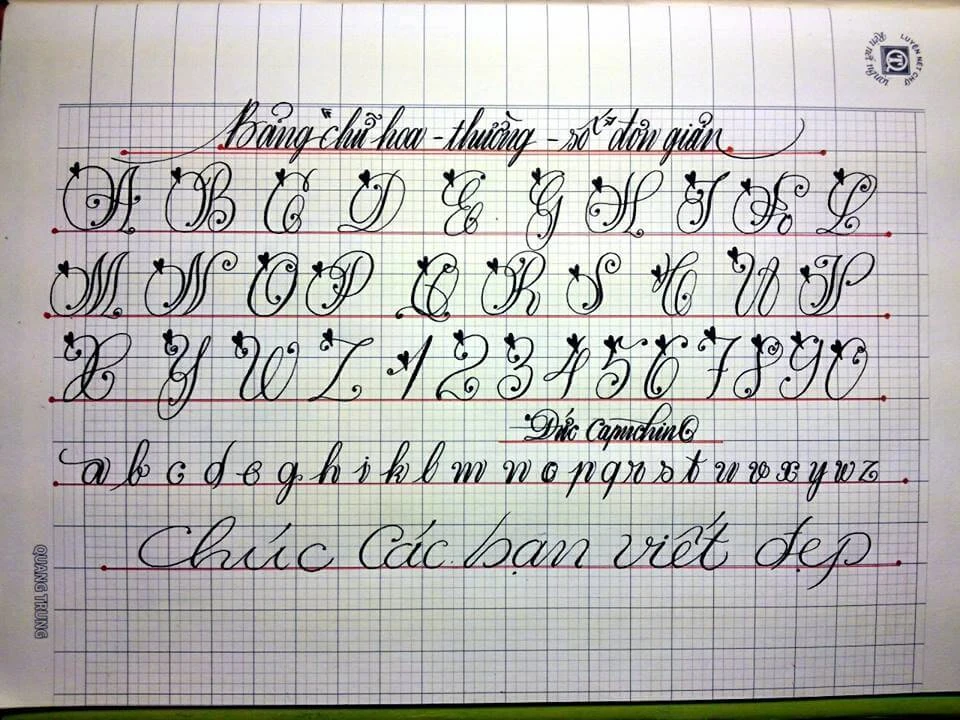 LUYỆN NÉT CHỮ
Rèn nết người
Bảng "chữ hoa - thường - số" đơn giản
A B C D E G H I K L
M N O P Q R S T U V
X Y W Z 1 2 3 4 5 6 7 8 9 0
Đức Capuchino
a b c d e g h i k l m n o p q r s t u v x y w z
Chúc Các bạn viết đẹp
QUANG TRUNG